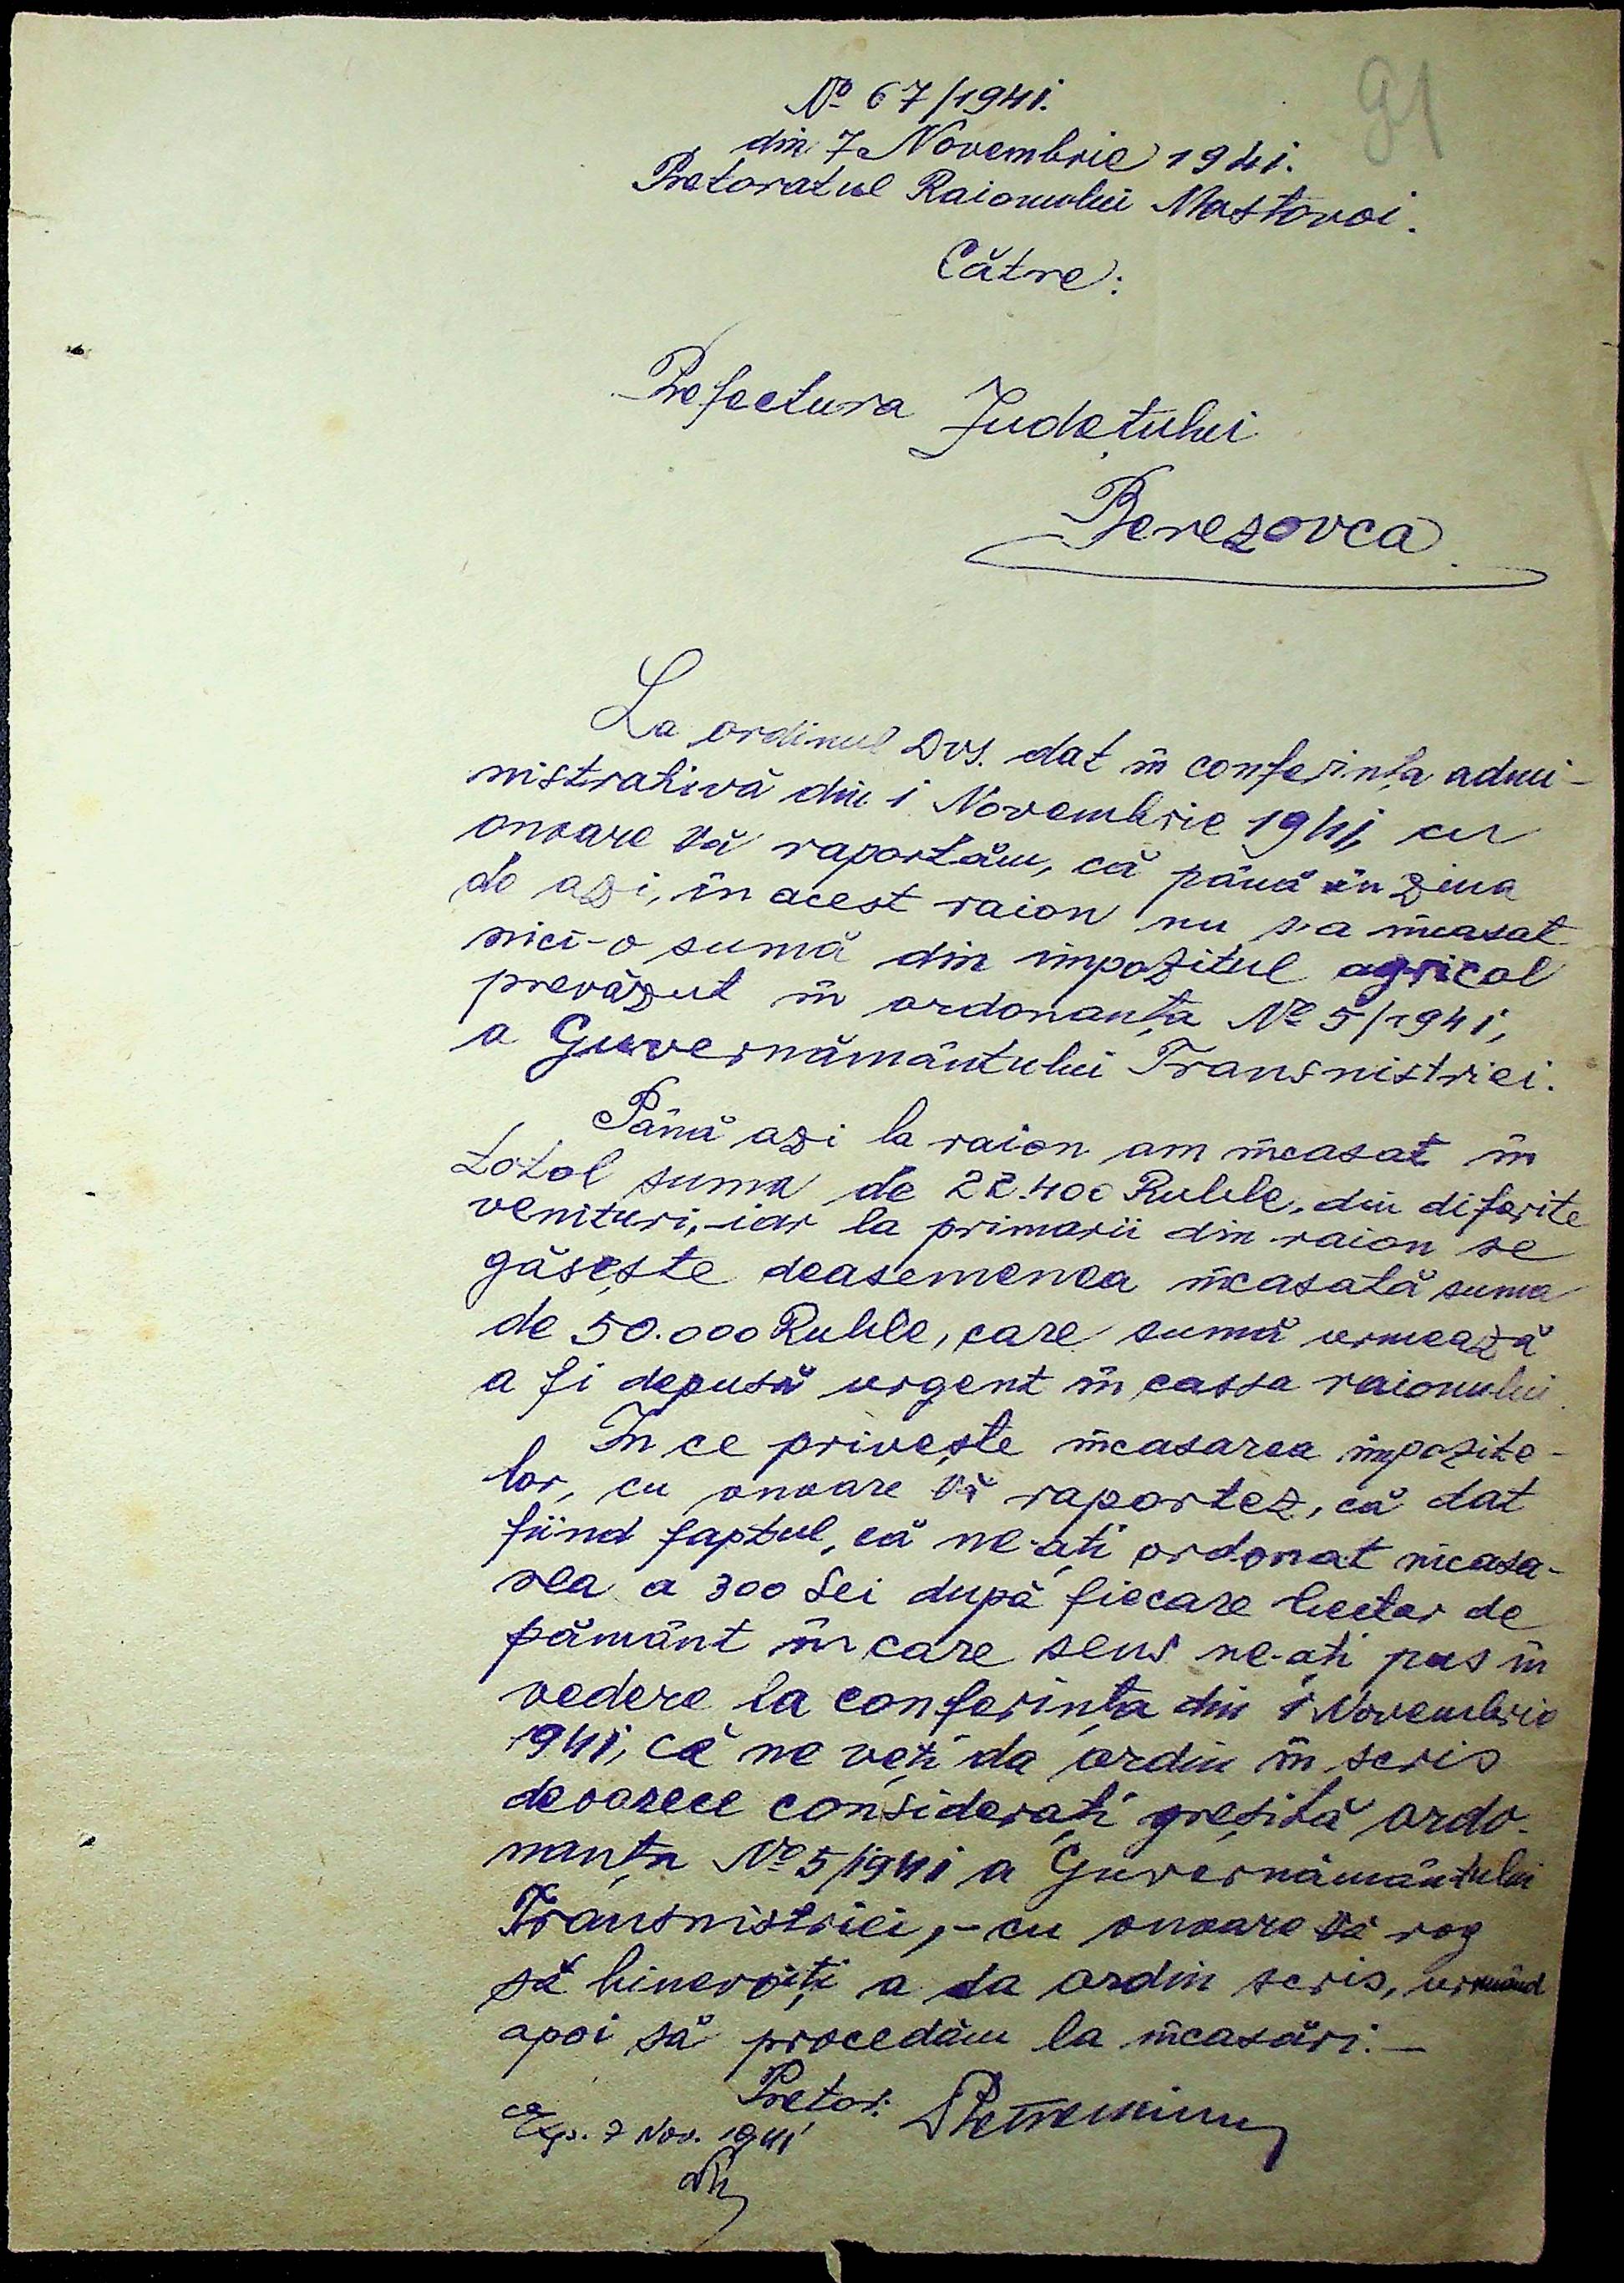 91
Nº 67/1941.
din 7 Novembrie 1941.
Pretoratul Raionului Mostovoi.
Către:
Prefectura Județului
Berezovca
La ordinul Dvs. dat în conferința admi-
nistrativă din 1 Novembrie 1941, cu
onoare vă raportăm, că până în ziua
de azi, în acest raion nu s-a încasat
nici-o sumă din impozitul agricol
prevăzut în ordonanța Nº 5/1941,
a Guvernământului Transnistriei.
Până azi la raion am încasat în
total suma de 22.400 Ruble, din diferite
venituri, iar la primării din raion se
găsește deasemenea încasată suma
de 50.000 Ruble, care sumă urmează
a fi depusă urgent în cassa raionului.
In ce privește încasarea impozite-
lor, cu onoare vă raportez, că dat
fiind faptul, că ne-ați ordonat încasa-
rea a 300 Lei după fiecare hectar de
pământ în care sens ne-ați pus în
vedere la conferința din 1 Novembrie
1941, că ne veți da ordin în scris
deoarece considerați greșită ordo-
nanța Nº 5/1941 a Guvernământului
Transnistriei, - cu onoare vă rog
să binevoiți a da ordin scris, urmând
apoi să procedăm la încasări. -
Pretor:
Exp. 7 Nov. 1941